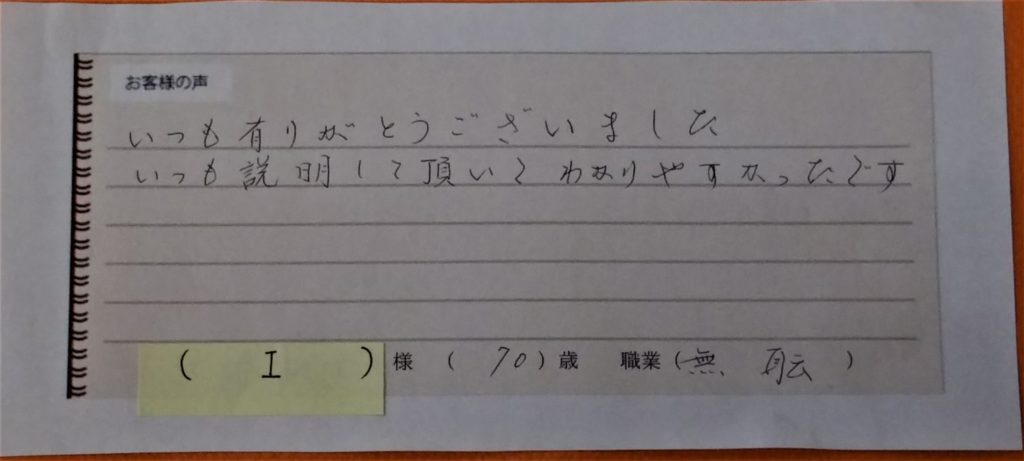 お客様の声
いつも有りがとうございました
いつも説明して頂いてわかりやすかったです
( I ) 様 ( 70 ) 歳 職業 ( 無 転 )